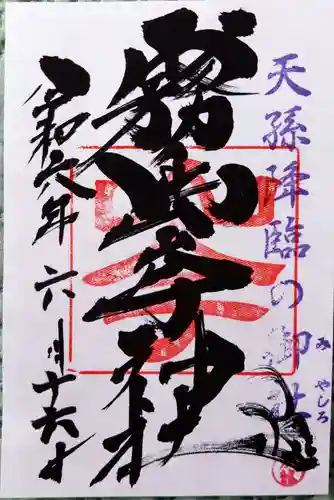 天孫降臨の御社
みやしろ
霧島岑神社
令和六年六月十六日